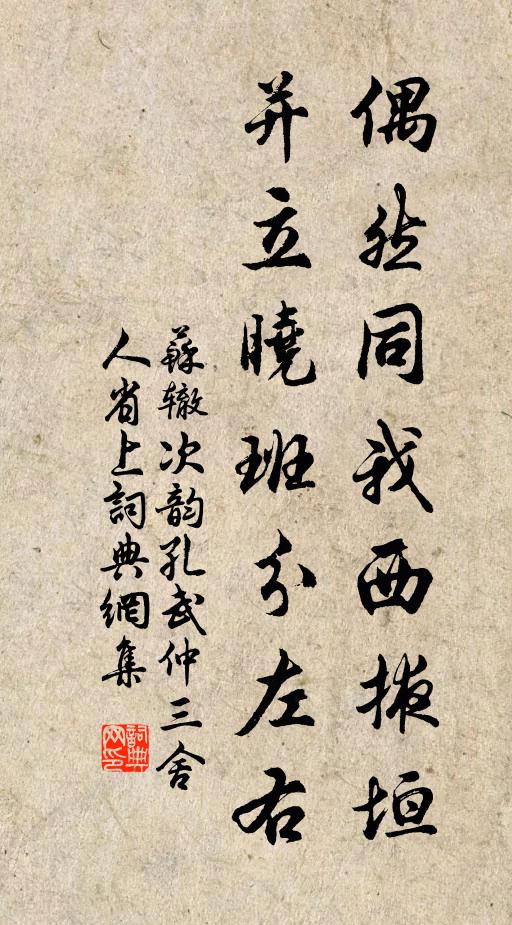 偶然同我西掖垣
并立曉班分左右
蘇辙次韵孔武仲三舍
人省上詞典網集
詞典网印